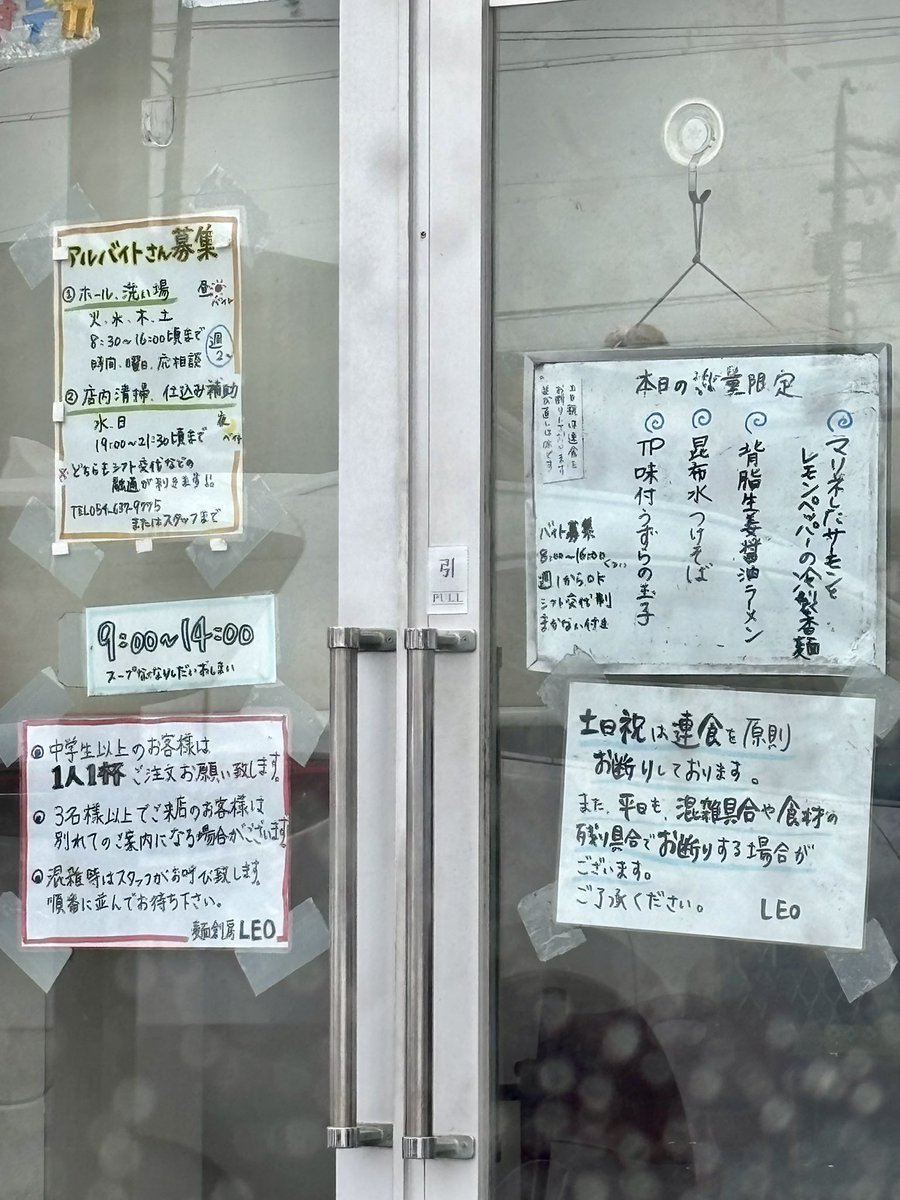 アルバイトさん募集
①ホール、洗い場
昼
バイト
火、水、木、土
8:30〜16:00頃まで
時間、曜日、応相談
週2〜
②店内清掃、仕込み補助
水、日
夜
バイト
19:00〜21:30頃まで
※どちらもシフト交代などの
融通が利きます!!
TEL054-637-9775
またはスタッフまで
9:00〜14:00
スープなくなりしだいおしまい
●中学生以上のお客様は
1人1杯ご注文お願い致します。
●3名様以上でご来店のお客様は
別れてのご案内になる場合がございます
●混雑時はスタッフがお呼び致します。
順番に並んでお待ち下さい。
麺創房LEO
引
PULL
本日の数量限定
マリネしたサーモンと
レモンペッパーの冷製香麺
背脂生姜醤油ラーメン
昆布水つけそば
TP味付うずらの玉子
土日祝は連食を
お断りしています
バイト募集
8:00〜16:00
週1からOK
シフト交代制
まかない付き
土日祝は連食を原則
お断りしております。
また、平日も、混雑具合や食材の
残り具合でお断りする場合が
ございます。
ご了承ください。 LEO